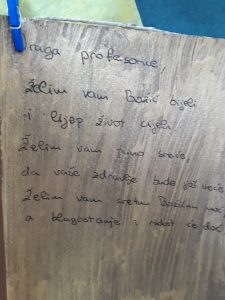 raga profesorice,
Želim vam Božić bijeli
i lijep život cijeli
Želim vam puno sreće,
da vaše zdravlje bude još veće
Želim vam sretnu Božićnu noć
a blagostanje i radost će doć